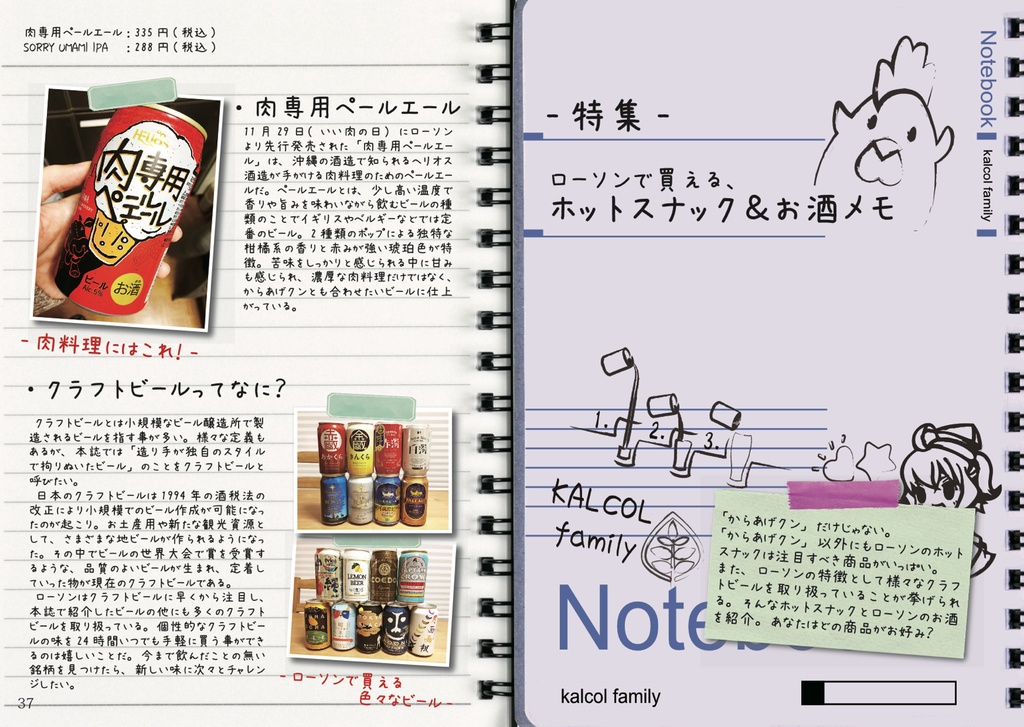 肉専用ペールエール：335円(税込)
SORRY UMAMI IPA ：288円(税込)
・肉専用ペールエール
11月29日(いい肉の日)にローソン
より先行発売された「肉専用ペールエー
ル」は、沖縄の酒造で知られるヘリオス
酒造が手がける肉料理のためのペールエー
ルだ。ペールエールとは、少し高い温度で
香りや旨みを味わいながら飲むビールの種
類のことでイギリスやベルギーなどでは定
番のビール。2種類のホップによる独特な
柑橘系の香りと赤みが強い琥珀色が特
徴。苦味をしっかりと感じられる中に甘み
も感じられ、濃厚な肉料理だけではなく、
からあげクンとも合わせたいビールに仕上
がっている。
HELIOS
肉専用
ペールエール
ビール
Alc.5%
お酒
-肉料理にはこれ!-
・クラフトビールってなに?
クラフトビールとは小規模なビール醸造所で製
造されるビールを指す事が多い。様々な定義も
あるが、本誌では「造り手が独自のスタイル
で拘りぬいたビール」のことをクラフトビールと
呼びたい。
日本のクラフトビールは1994年の酒税法の
改正により小規模でのビール作成が可能になっ
たのが起こり。お土産用や新たな観光資源と
して、さまざまな地ビールが作られるようになっ
た。その中でビールの世界大会で賞を受賞す
るような、品質のよいビールが生まれ、定着し
ていった物が現在のクラフトビールである。
ローソンはクラフトビールに早くから注目し、
本誌で紹介したビールの他にも多くのクラフト
ビールを取り扱っている。個性的なクラフトビー
ルの味を24時間いつでも手軽に買う事ができ
るのは嬉しいことだ。今まで飲んだことの無い
銘柄を見つけたら、新しい味に次々とチャレン
ジしたい。
LEMON
BEER
COEDO
-ローソンで買える
色々なビール-
37
-特集-
ローソンで買える、
ホットスナック&お酒メモ
Notebook
kalcol family
1.
2.
3.
KALCOL
family
「からあげクン」だけじゃない。
「からあげクン」以外にもローソンのホット
スナックは注目すべき商品がいっぱい。
また、ローソンの特徴として様々なクラフ
トビールを取り扱っていることが挙げられ
る。そんなホットスナックとローソンのお酒
を紹介。あなたはどの商品がお好み?
Notebook
kalcol family